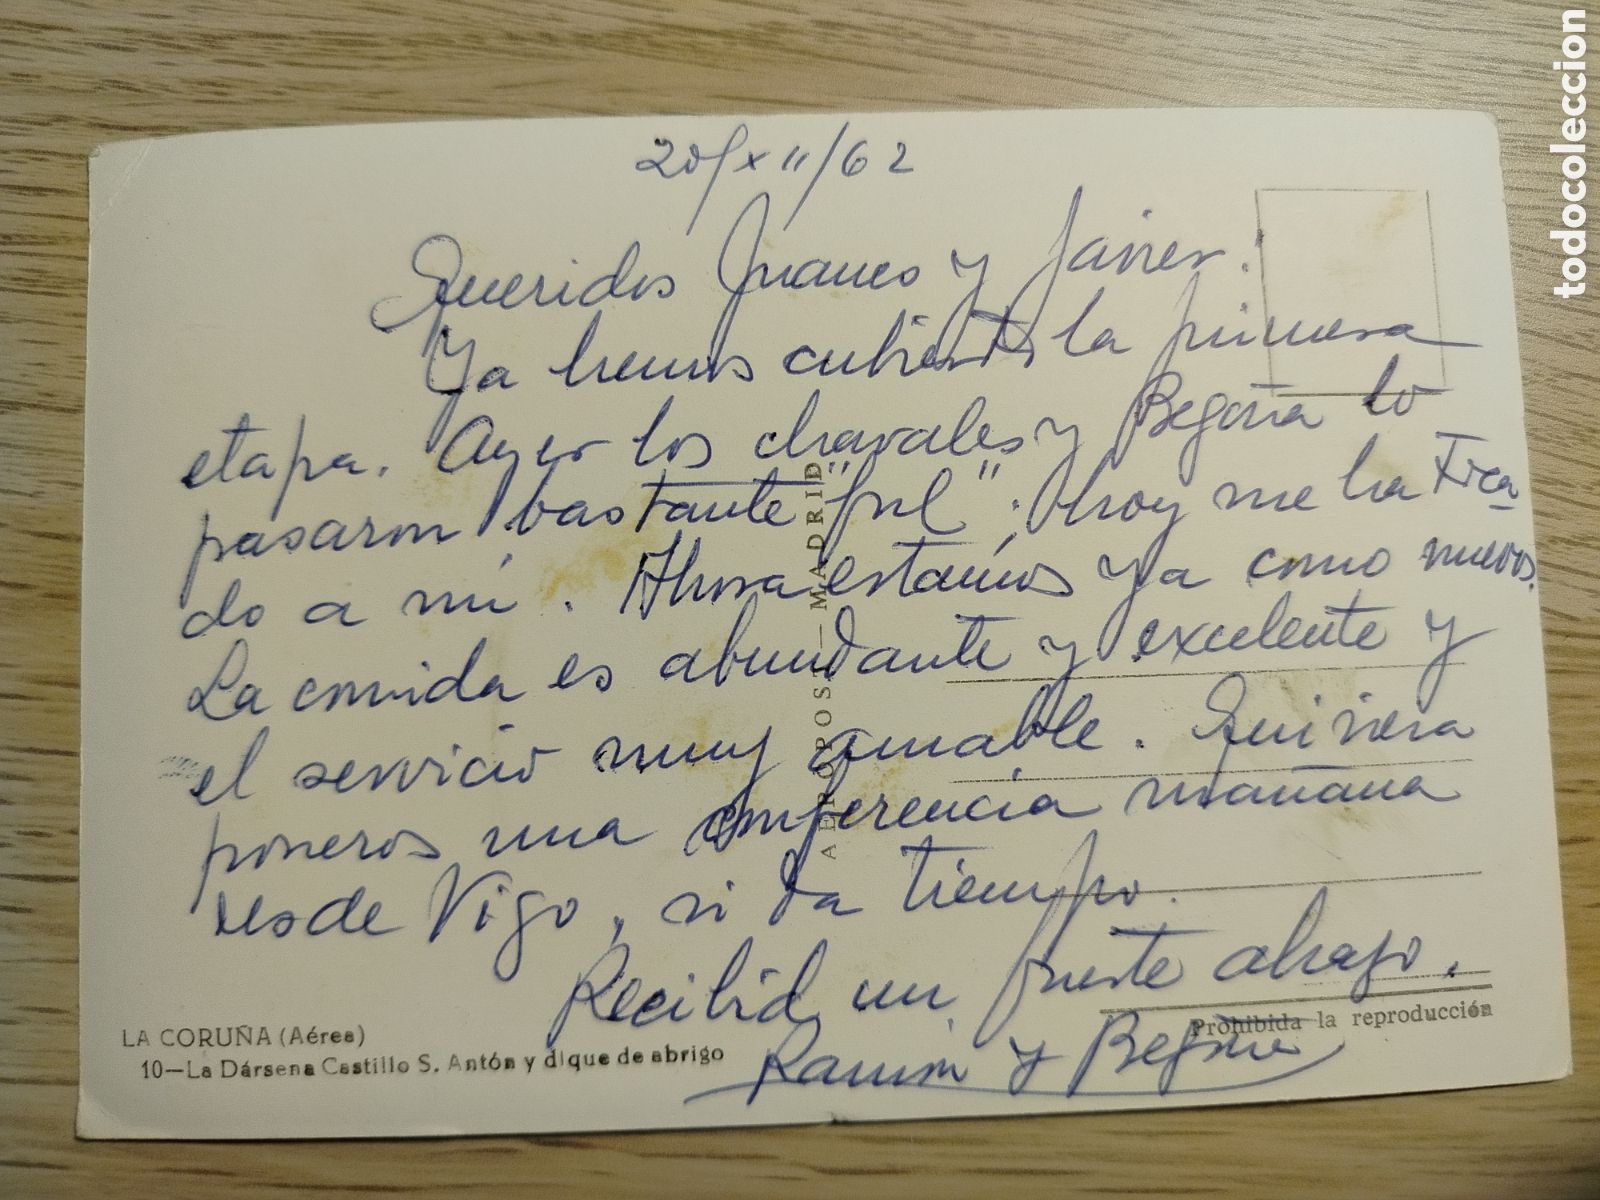 20/XII/62
Queridos Juanco y Javier:
Ya hemos cubierto la primera
etapa. Ayer los chavales y Begoña lo
pasaron bastante "ful". Hoy me ha toca
do a mí. Ahora estamos ya como nuevos.
La comida es abundante y excelente y
el servicio muy amable. Quisiera
poneros una conferencia mañana
desde Vigo, si da tiempo.
Recibid un fuerte abrazo.
Ramón y Begoña
AEROPOST — MADRID
LA CORUÑA (Aérea)
10—La Dársena Castillo S. Antón y dique de abrigo
Prohibida la reproducción
todocoleccion